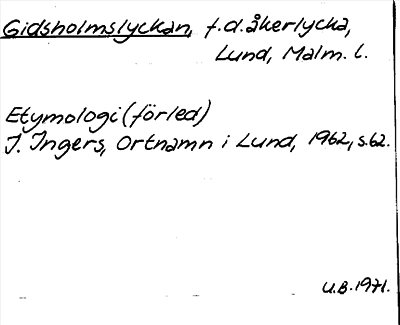 Gidsholmslyckan, f.d. åkerlycka,
Lund, Malm. l.
Etymologi (förled)
J. Ingers, Ortnamn i Lund, 1962, s. 62.
U.B. 1971.